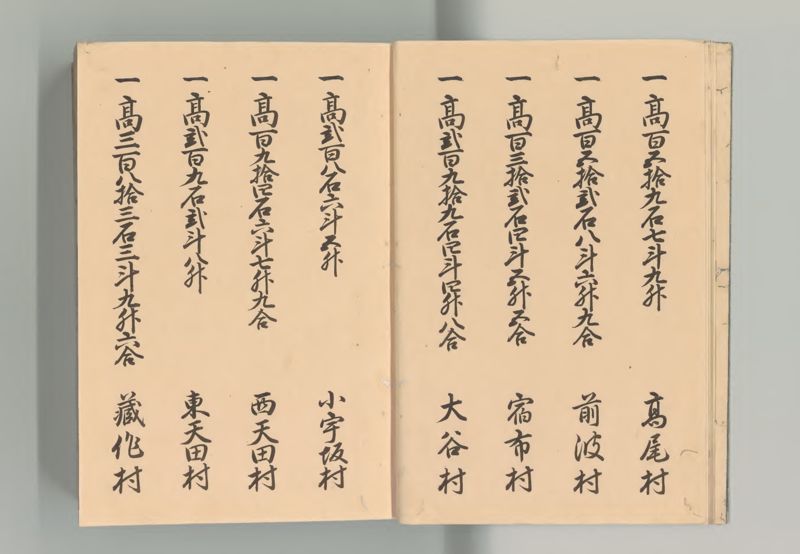 一高百五拾九石七斗九升　高尾村
一高百五拾弐石八斗六升九合　前波村
一高百三拾弐石四斗五升五合　宿布村
一高弐百九拾九石四斗四升八合　大谷村
一高弐百八石六斗五升　小宇坂村
一高百九拾四石六斗七升九合　西天田村
一高弐百九石弐斗八升　東天田村
一高三百八拾三石三斗九升六合　蔵作村